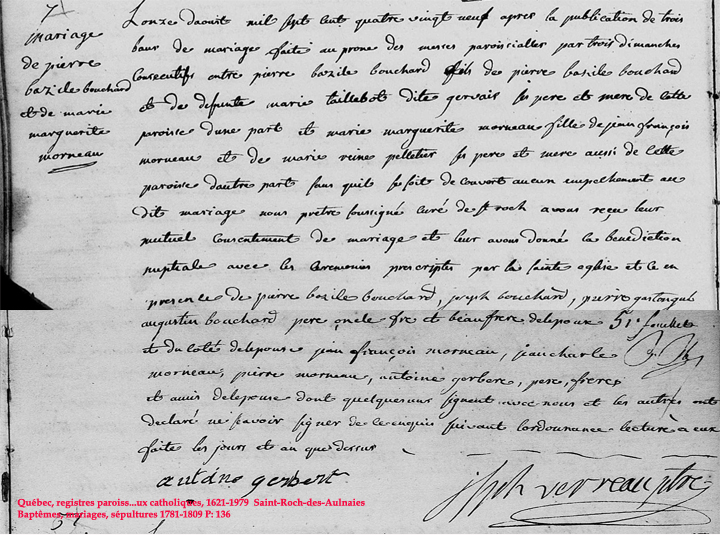 7
mariage
de pierre
bazile bouchard
et de marie
marguerite
morneau
Lonze daoust mil sept cent quatre vingt neuf apres la publication de trois
bans de mariage faite au prone des messes paroissialles par trois dimanches
consecutifs entre pierre bazile bouchard fils de pierre basile bouchard
et de defunte marie taillebot dite gervais ses pere et mere de cette
paroisse dune part et marie marguerite morneau fille de jean françois
morneau et de marie reine pelletier ses pere et mere aussi de cette
paroisse dautre part sans quil se soit decouvert aucun empechement au
dit mariage nous prêtre soussigné curé de st roch avons reçu leur
mutuel consentement de mariage et leur avons donné la benediction
nuptiale avec les ceremonies prescriptes par la sainte eglise et ce en
presence de pierre bazile bouchard, joseph bouchard, pierre
augustin bouchard pere oncle fre et beaufrere delepoux
et du coté delepouse jean françois morneau, jean charle
morneau, pierre morneau, antoine gerbere, pere, freres
et amis delepouse dont quelques uns signent avec nous et les autres ont
declaré ne savoir signer de ce enquis suivant lordonnance lecture à eux
faite les jours et an que dessus
antoine gerbert
jsph verreau ptre
Québec, registres paroiss...ux catholiques, 1621-1979 Saint-Roch-des-Aulnaies
Baptêmes, mariages, sépultures 1781-1809 P: 136